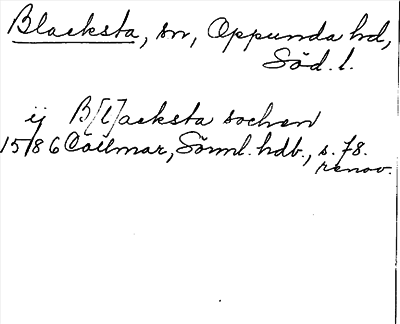 Blacksta, sn, Oppunda hd,
Söd. l.
ij B[l]acksta sochen
1586 Collmar, Sörml. hdb., s. 78.
renov.